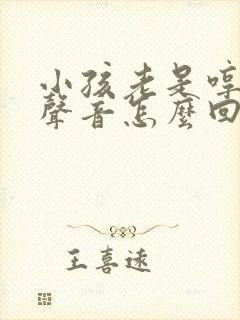 小孩老是哼
聲音怎麼回
王喜遠